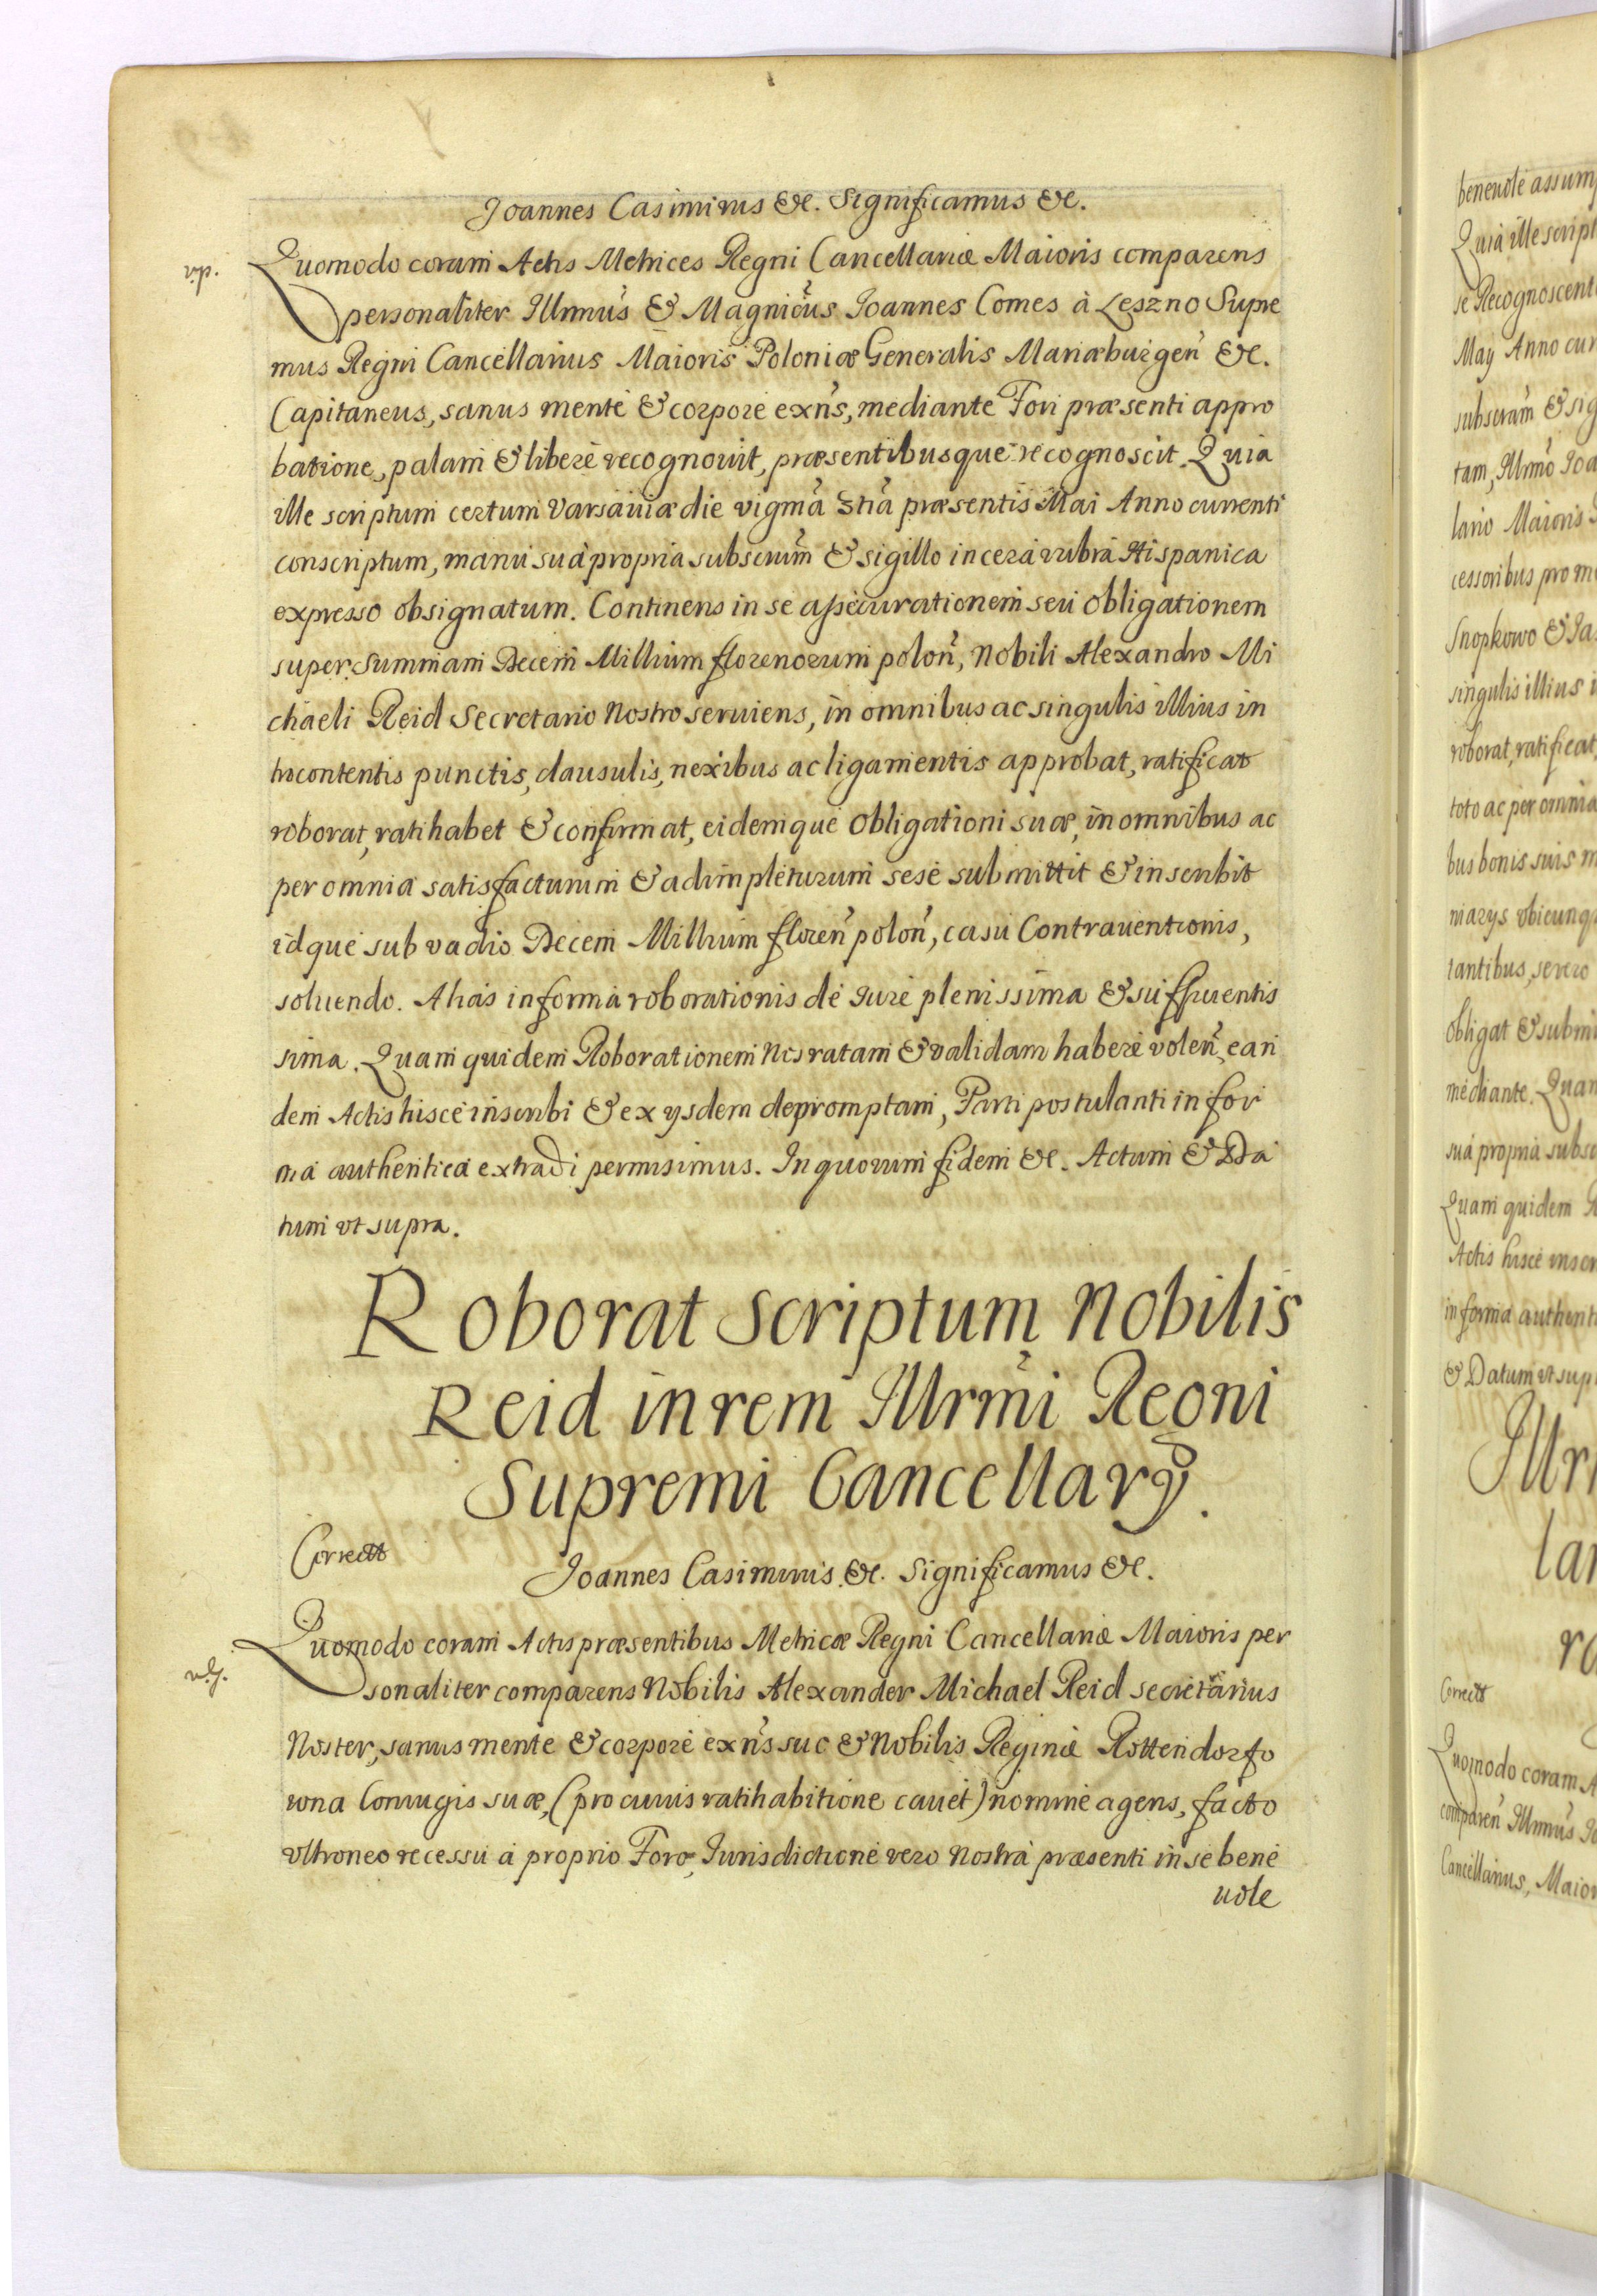 Joannes Casimirus &c. Significamus &c.
vip.
Quomodo coram Actis Metrices Regni Cancellariæ Maioris comparens
personaliter Illrmus & Magnicus Joannes Comes à Leszno Supre
mus Regni Cancellarius Maioris Poloniæ Generalis Mariæburgen &c.
Capitaneus, sanus mente & corpore exns, mediante Fori præsenti appro
batione, palam & libere recognovit, præsentibusque recognoscit. Quia
ille scriptum certum Varsaviæ die vigma 3tia præsentis Mai Anno currenti
conscriptum, manu suà propria subscrum & sigillo in cerà rubrà Hispanica
expresso obsignatum. Continens in se assecurationem seu obligationem
super summam Decem Millium florenorum polon, Nobili Alexandro Mi
chaeli Reid Secretario Nostro serviens, in omnibus ac singulis illius in
tracontentis punctis, clausulis, nexibus ac ligamentis approbat, ratificat
roborat, ratihabet & confirmat, eidemque obligationi suæ, in omnibus ac
per omnia satisfacturum & adimpleturum sese submittit & inscribit
idque sub vadio Decem Millium floren polon, casu Contraventionis,
solvendo. Alias in forma roborationis de jure plenissima & sufficientis
sima. Quam quidem Roborationem Nos ratam & validam habere volen, ean
dem Actis hisce inscribi & ex ysdem depromptam, Parti postulanti in for
mà authentica extradi permisimus. In quorum fidem &c. Actum & Da
tum ut supra.
Roborat Scriptum Nobilis
Reid in rem Illrmi Regni
Supremi Cancellary.
Correct
Joannes Casimirus. &c. Significamus &c.
Quomodo coram Actis præsentibus Metricæ Regni Cancellariæ Maioris per
sonaliter comparens Nobilis Alexander Michael Reid secretarius
Noster, sanus mente & corpore exns suo & Nobilis Reginæ Rottendorfo
wna Coniugis suæ, (pro cuius ratihabitione cavet) nomine agens, facto
ultroneo recessu à proprio Foro, Jurisdictione vero Nostrà præsenti in se bene
uole
benevole assum
Quia ille script
se Recognoscent
May Anno cur
subscram & sig
tam, Illrmo Joa
lario Maioris
cessoribus pro m
Snopkowo & Ja
singulis illius i
roborat, ratificat,
toto ac per omnia
bus bonis suis m
marys ubicunq
tantibus, severo
obligat & submi
mediante. Quam
suà propria subsc
Quam quidem R
Actis hisce inscr
in forma authent
& Datum ut sup
Illr
lar
ro
Correct
Quomodo coram A
comparen Illrmus Jo
Cancellarius, Maior